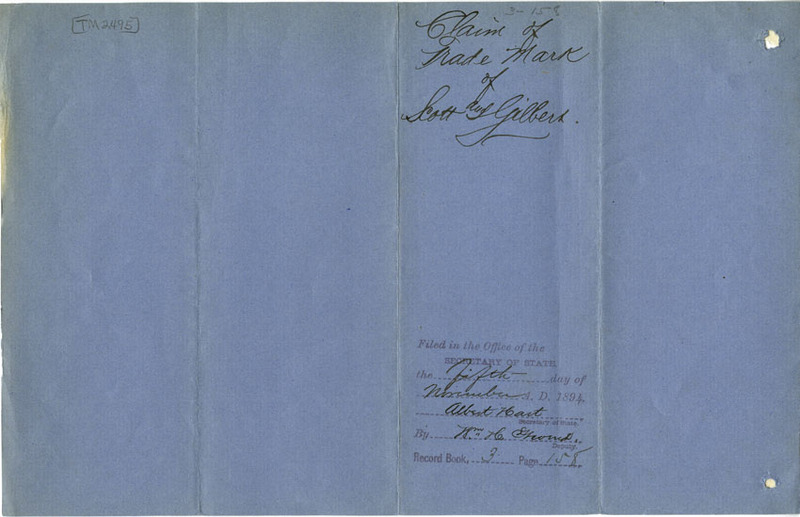 TM2495
3-158
Claim of
Trade Mark
of
Scott and Gilbert.
Filed in the Office of the
SECRETARY OF STATE,
the fifth day of
November A. D. 1894,
Albert Hart
Secretary of State.
By Wm H.
Deputy.
Record Book, 3 Page 158